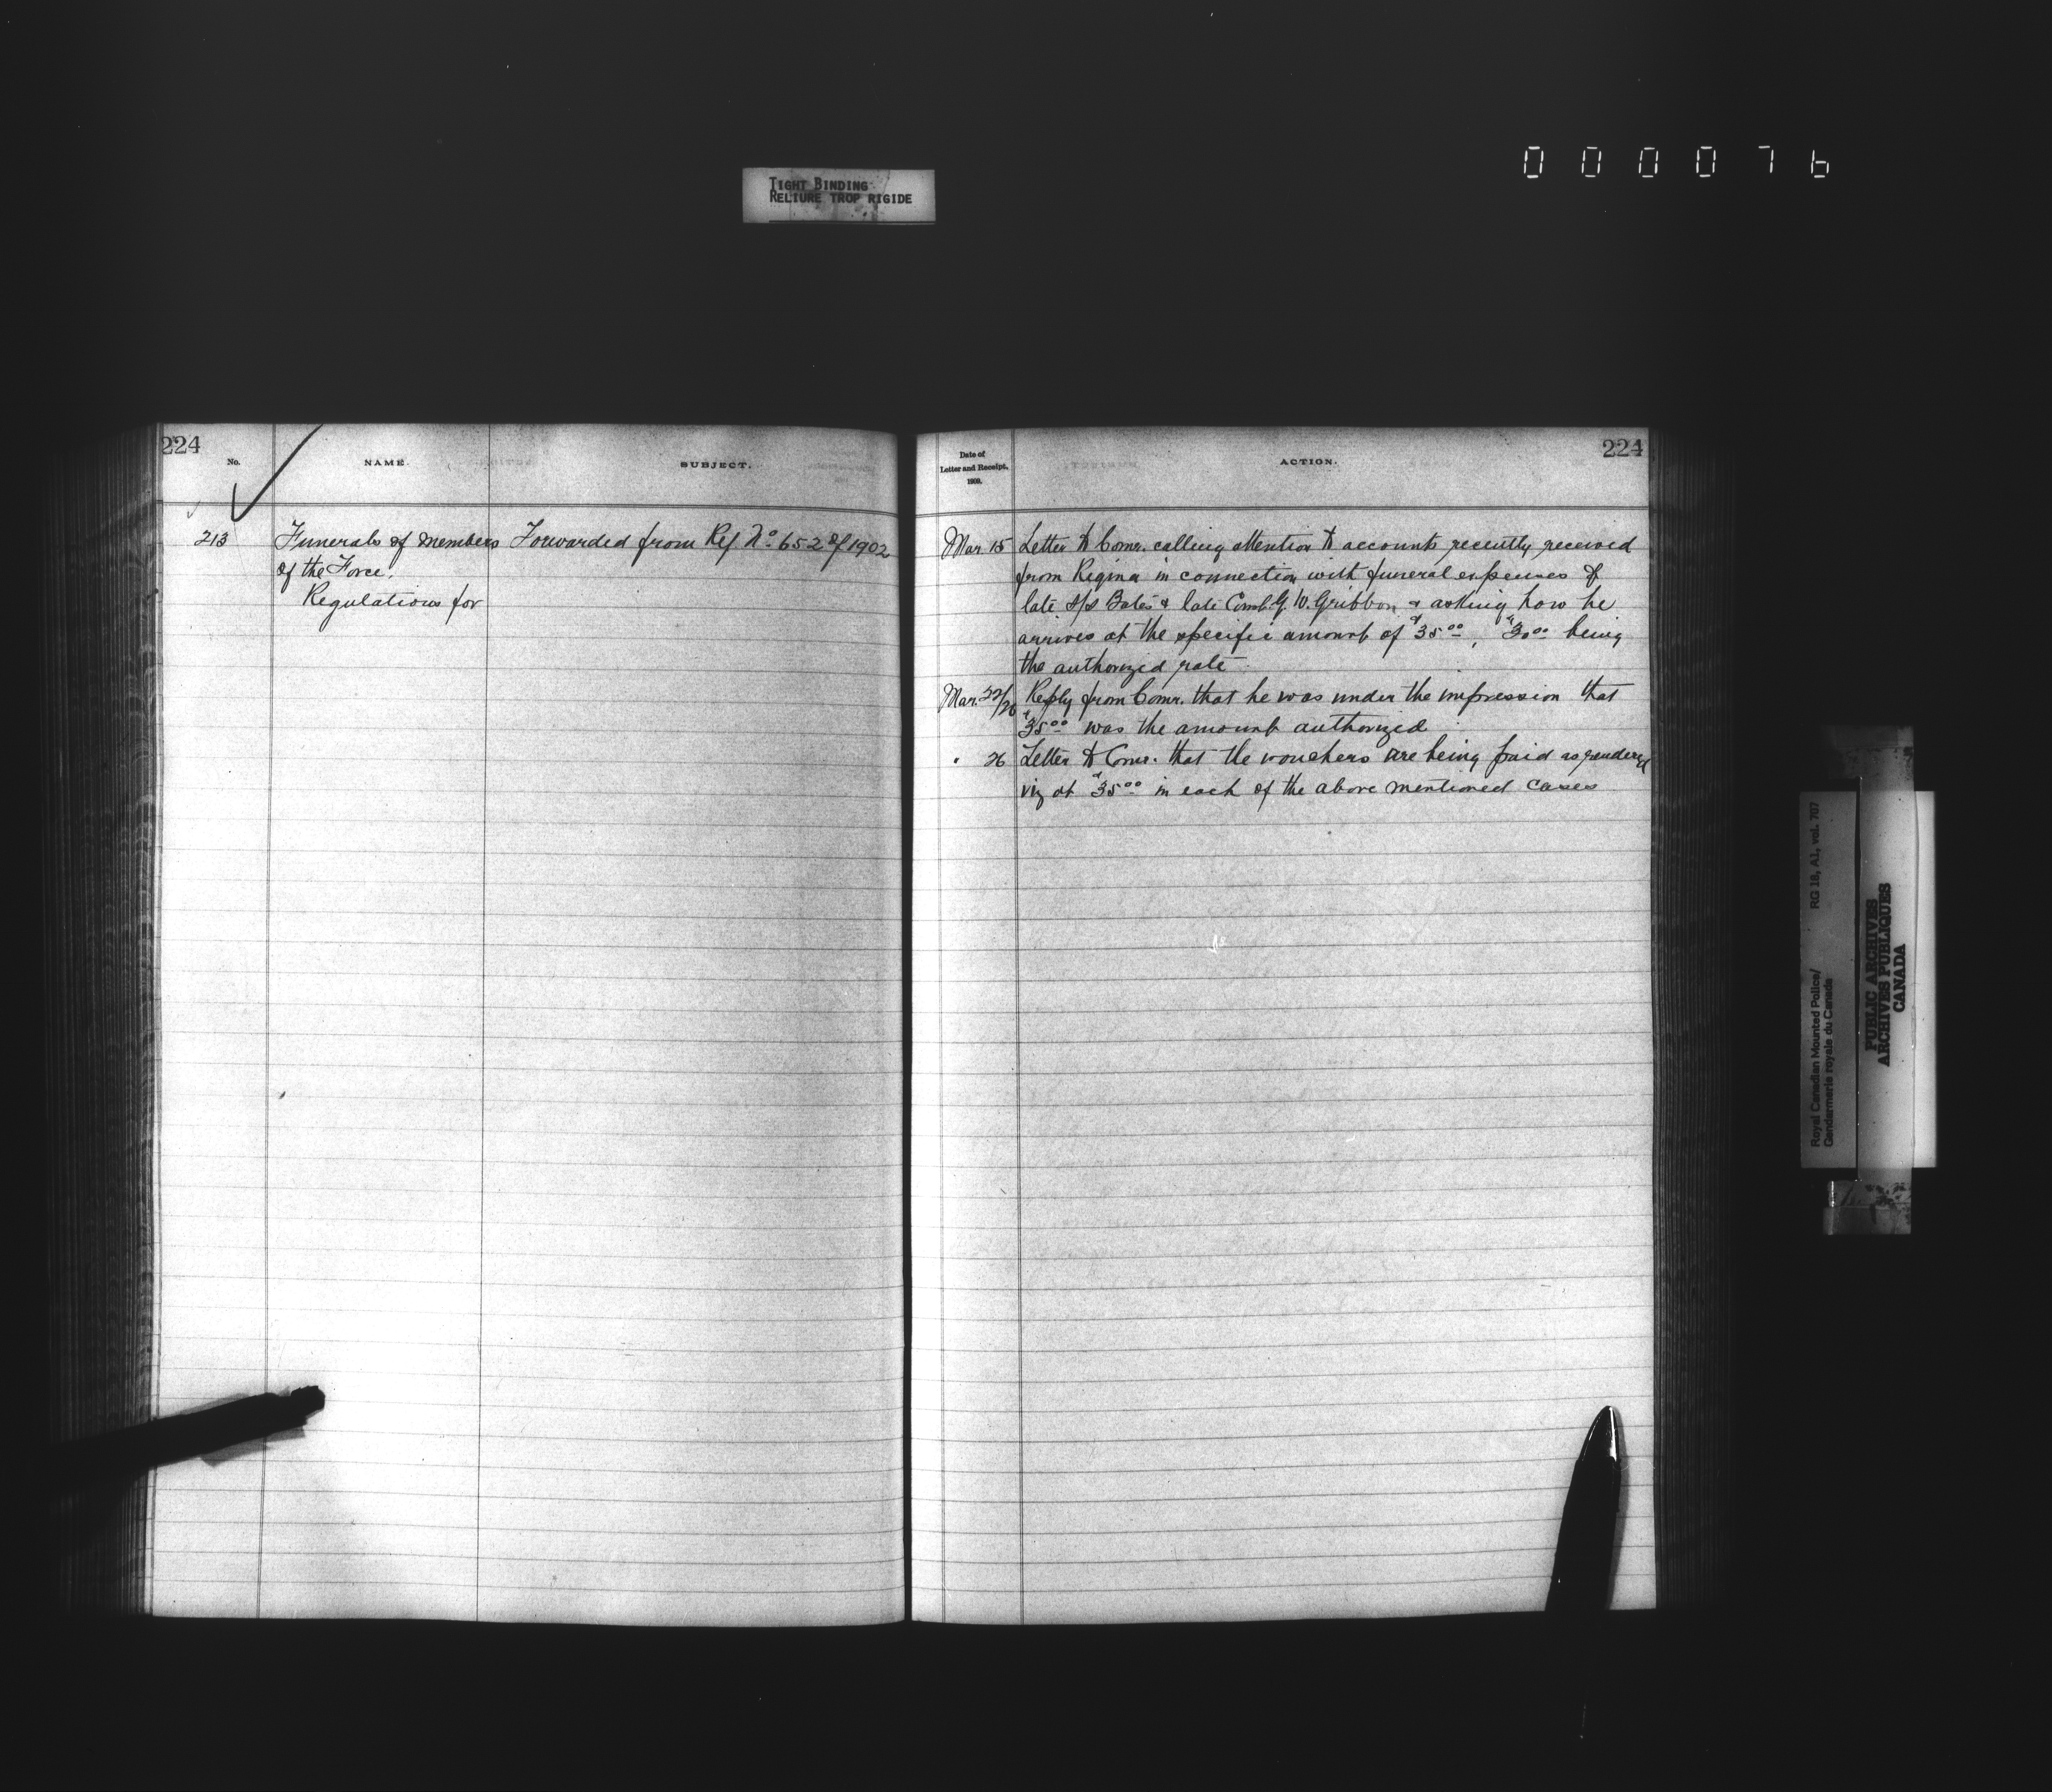 000076
TIGHT BINDING
RELIURE TROP RIGIDE
224
No.
NAME.
SUBJECT.
213
Funerals of members
of the Force.
Regulations for
Forwarded from Ref No. 652 of 1902
Date of
Letter and Receipt,
190
ACTION.
224
Mar. 15 Letter to Comr. calling attention to accounts recently received
from Regina in connection with funeral expenses of
late S/S Bates & late Const. G. W. Gribbon & asking how he
arrives at the specific amount of $35.00, $30.00 being
the authorized rate
Mar. 22/26 Reply from Comr. that he was under the impression that
$35.00 was the amount authorized
" 26 Letter to Comr. that the vouchers are being paid as rendered
viz at $35.00 in each of the above mentioned cases
Royal Canadian Mounted Police/ RG 18, A1, vol. 707
Gendarmerie royale du Canada
PUBLIC ARCHIVES
ARCHIVES PUBLIQUES
CANADA